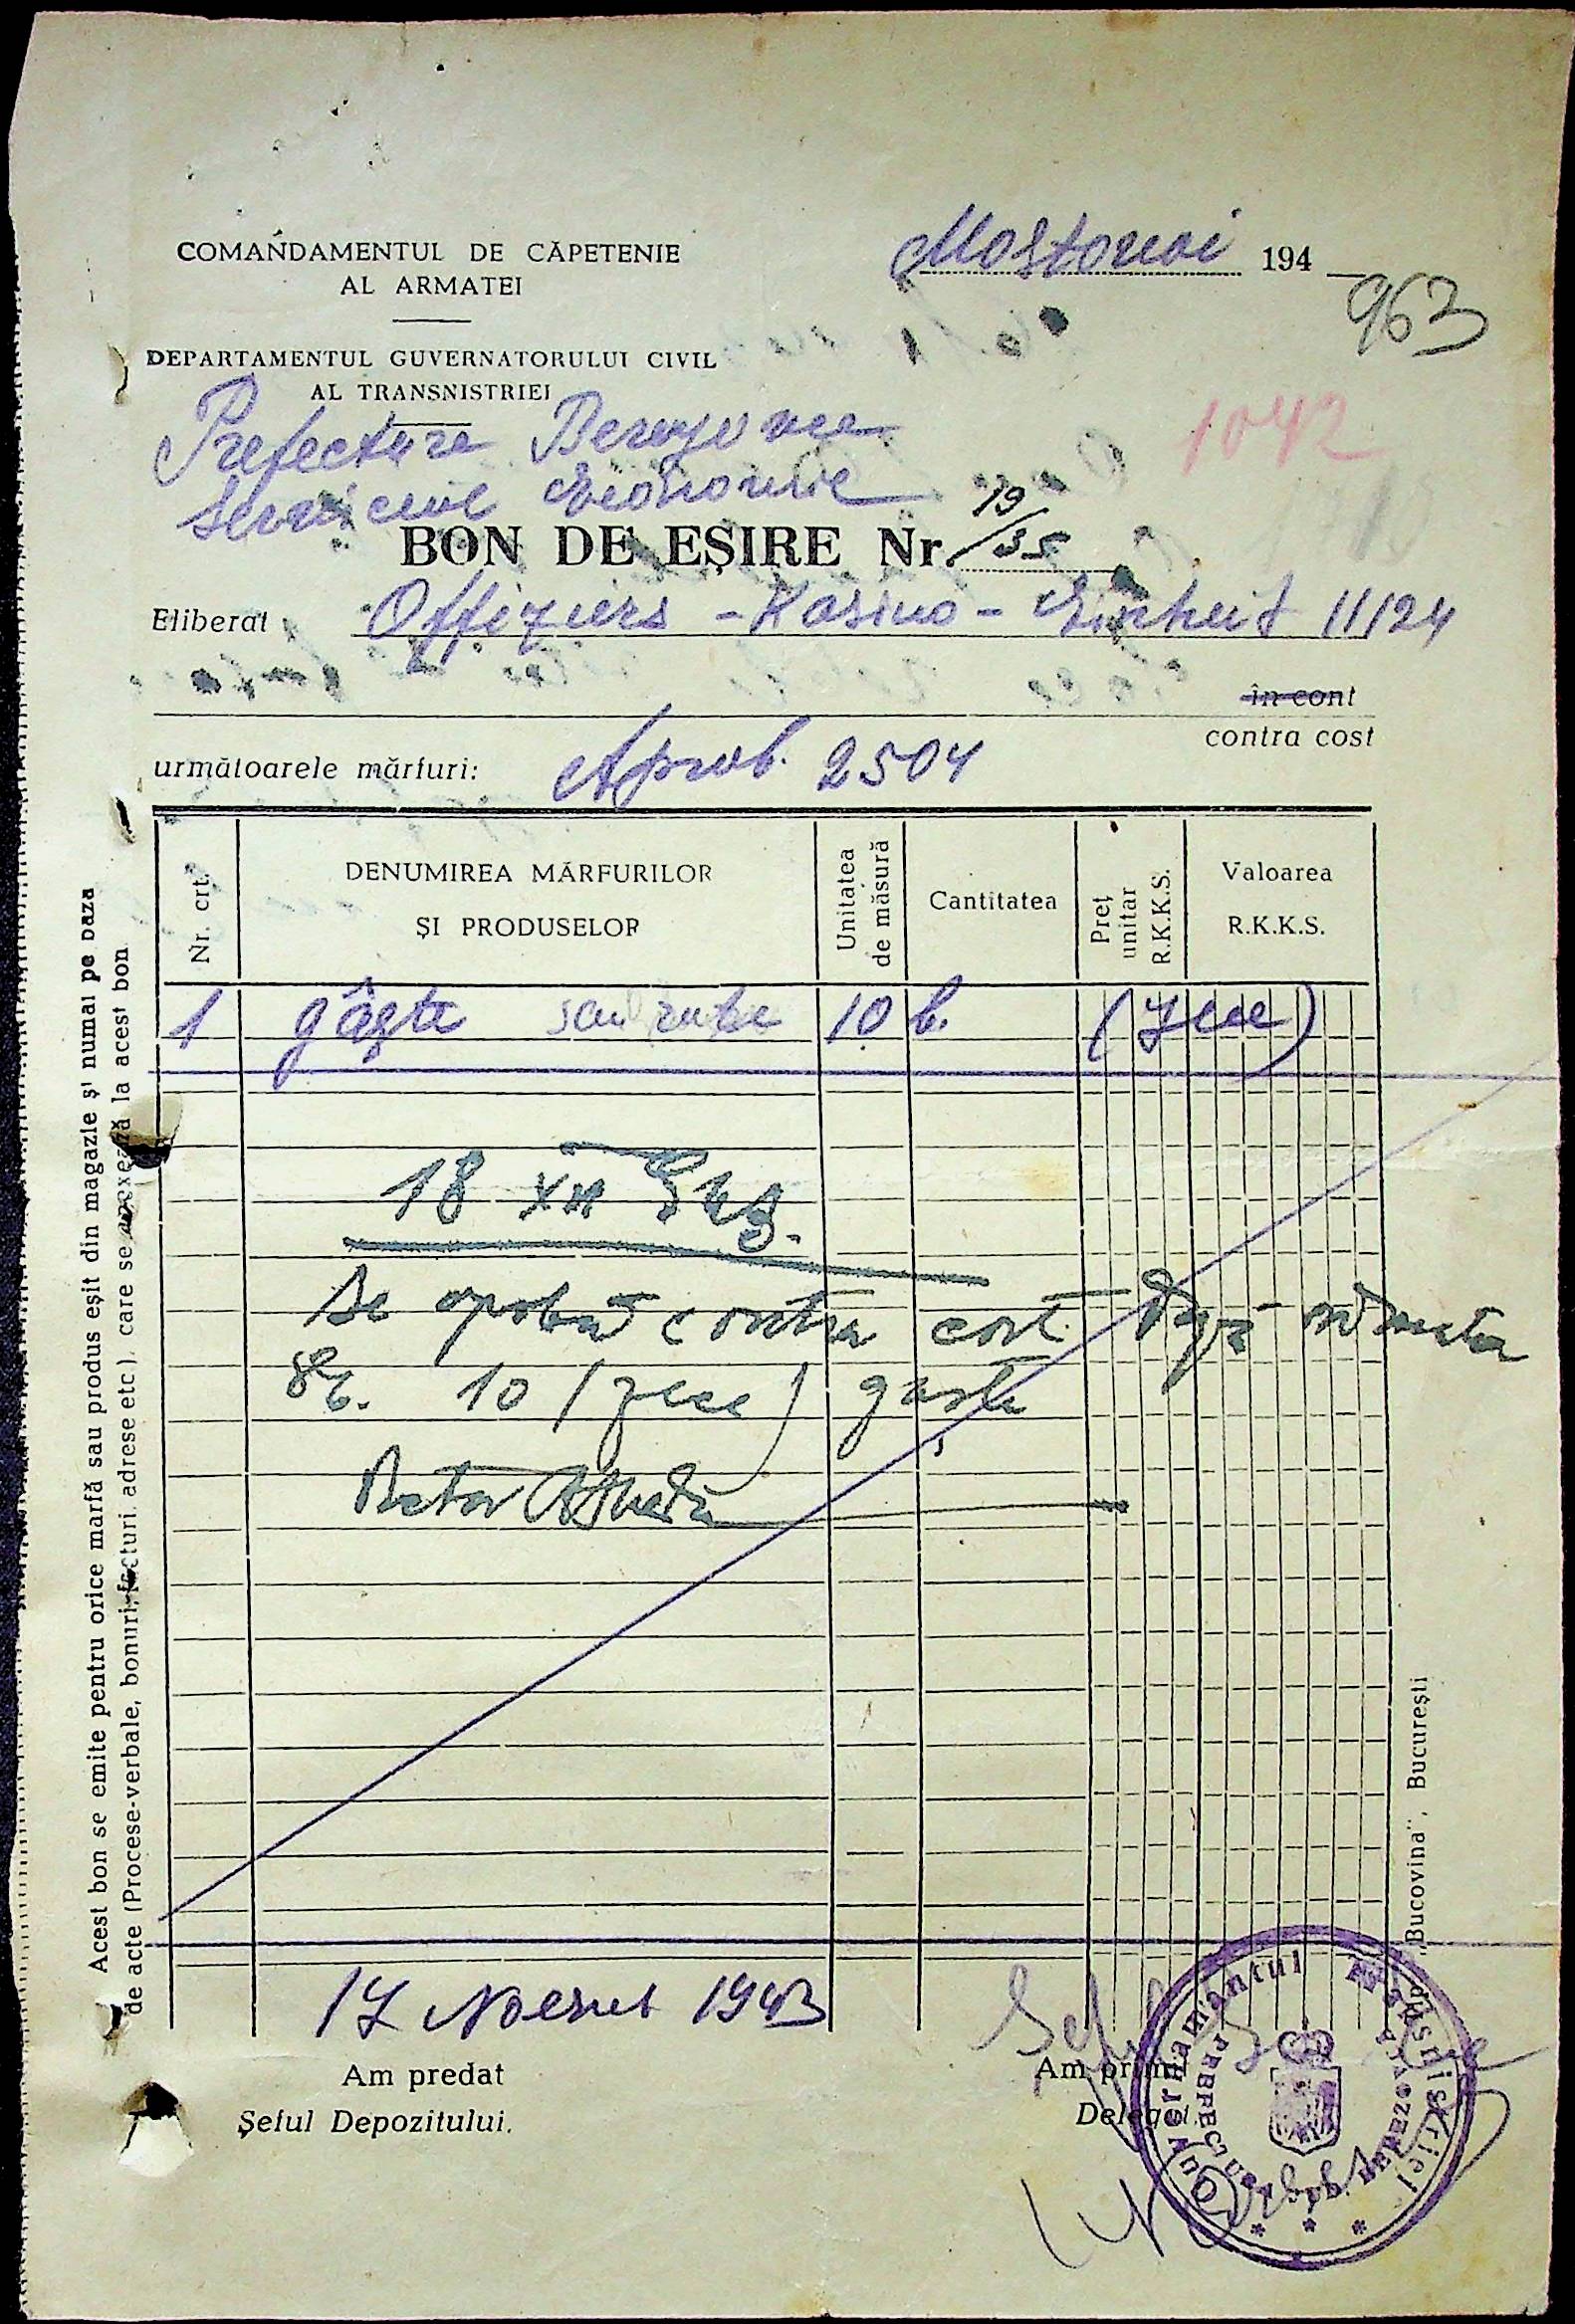 COMANDAMENTUL DE CĂPETENIE
AL ARMATEI
Mostovoi 194
963
DEPARTAMENTUL GUVERNATORULUI CIVIL
AL TRANSNISTRIEI
Prefectura Berezovca
1042
Serviciul Economic
BON DE EȘIRE Nr. 19/35
Eliberat Offiziers - Kasino - Einheit 11124
în cont
contra cost
următoarele mărfuri: Aprob. 2504
Nr. crt.
DENUMIREA MĂRFURILOR
ȘI PRODUSELOR
Unitatea de măsură
Cantitatea
Preț unitar R.K.K.S.
Valoarea
R.K.K.S.
1 gâște sau 10 b. (zece)
18 XII
Se aprobă contra cost
10 (zece) gâște
17 Noemb 1943
Am predat
Șeful Depozitului.
Am primit
Delegat.
Guvernamântul Transnistriei
PREFECTURA BEREZOVCA
Acest bon se emite pentru orice marfă sau produs eșit din magazie și numai pe baza
de acte (Procese-verbale, bonuri, facturi, adrese etc.). care se anexează la acest bon
„Bucovina", București